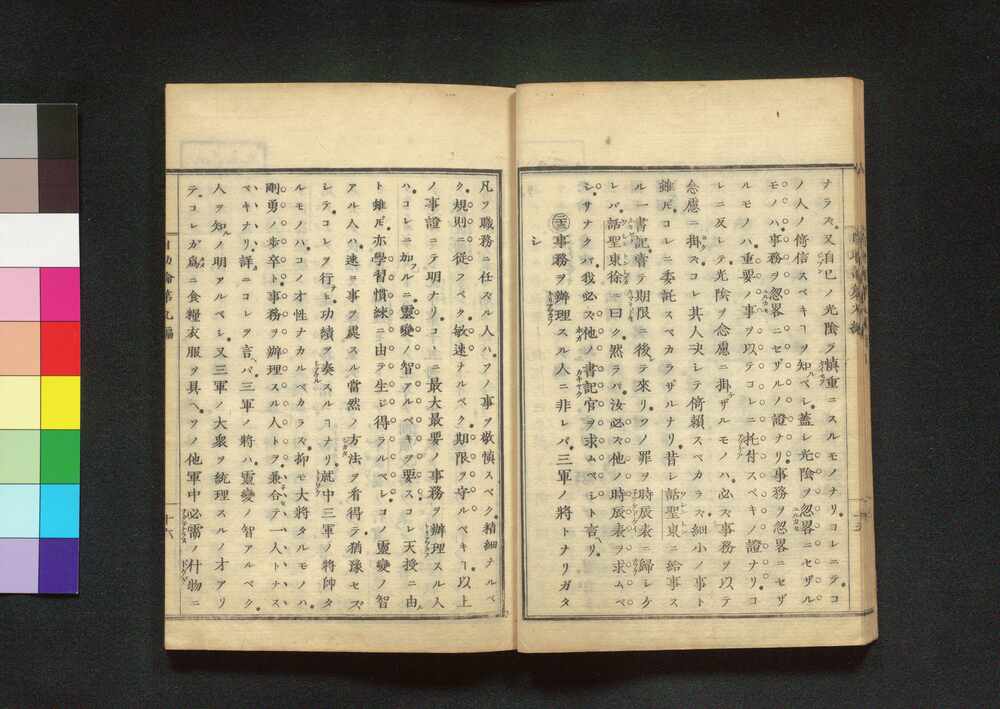 ナラズ又自己ノ光陰ヲ愼重ニスルモノナリコレニテコ
ノ人ノ倚信スベキヿヲ知ベシ蓋シ光陰ヲ忽畧ニセザル
モノハ事務ヲ忽畧ニセザルノ證ナリ事務ヲ忽畧ニセザ
ルモノハ重要ノ事ヲ以テコレニ托付スベキノ證ナリコ
レニ反シテ光陰ヲ念慮ニ掛ザルモノハ必ズ事務ヲ以テ
念慮ニ掛ズコレ其人決シテ倚頼スベカラズ細小ノ事ト
雖ドモコレニ委託スベカラザルナリ昔シ話聖東ニ給事ス
ル一書記嘗テ期限ニ後テ來リソノ罪ヲ時辰表ニ歸シケ
レバ話聖東徐ニ曰ク然ラバ汝必ズ他ノ時辰表ヲ求ムベ
シサナクバ我必ズ他ノ書記官ヲ求ムベシト言リ
事務ヲ辦理スル人ニ非レバ三軍ノ將トナリガタ
シ
凡ソ職務ニ任スル人ハソノ事ヲ敬愼スベク精細ナルベ
ク規則ニ從フベク敏速ナルベク期限ヲ守ルベキヿ以上
ノ事證ニテ明ナリコヽニ最大最要ノ事務ヲ辦理スル人
ハコレニ加フルニ靈變ノ智アルベキヲ要スコレ天授ニ由
ト雖ドモ亦學習慣練ニ由テ生ジ得ラルベシコノ靈變ノ智
アル人ハ速ニ事ヲ處スル當然ノ方法ヲ看得テ猶豫セズ
シテコレヲ行ヒ功績ヲ奏スルヿナリ就中三軍ノ將帥タ
ルモノハコノ才性ナカルベカラズ抑モ大將タルモノハ
剛勇ノ歩卒ト事務ヲ辦理スル人トヲ兼合テ一人トナス
ベキナリ詳ニコレヲ言バ三軍ノ將ハ靈變ノ智アルベク
人ヲ知ルノ明アルベシ又三軍ノ大衆ヲ統理スルノ才アリ
テコレガ爲ニ食糧衣服ヲ具ヘソノ他軍中必需ノ什物ニ
自助論第九編
十六